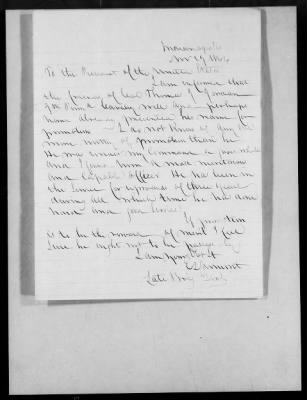 Indianapolis
Nov 29 1864
To the President of the United States
I am informed that
the friends of Col Thomas J Harrison
of the 8th Ind Cavalry will and perhaps
have already presented his name for
promotion I do not know of any one
more worthy of promotion than he
He was under my command
and I found him a most meritorious
and capable officer He has been in
the service for upwards of three years
during all which time he has done
hard and good service
If promotion
is to be the reward of merit I feel
sure he ought not to be passed by
I am your Obt St
Late Brig Genl